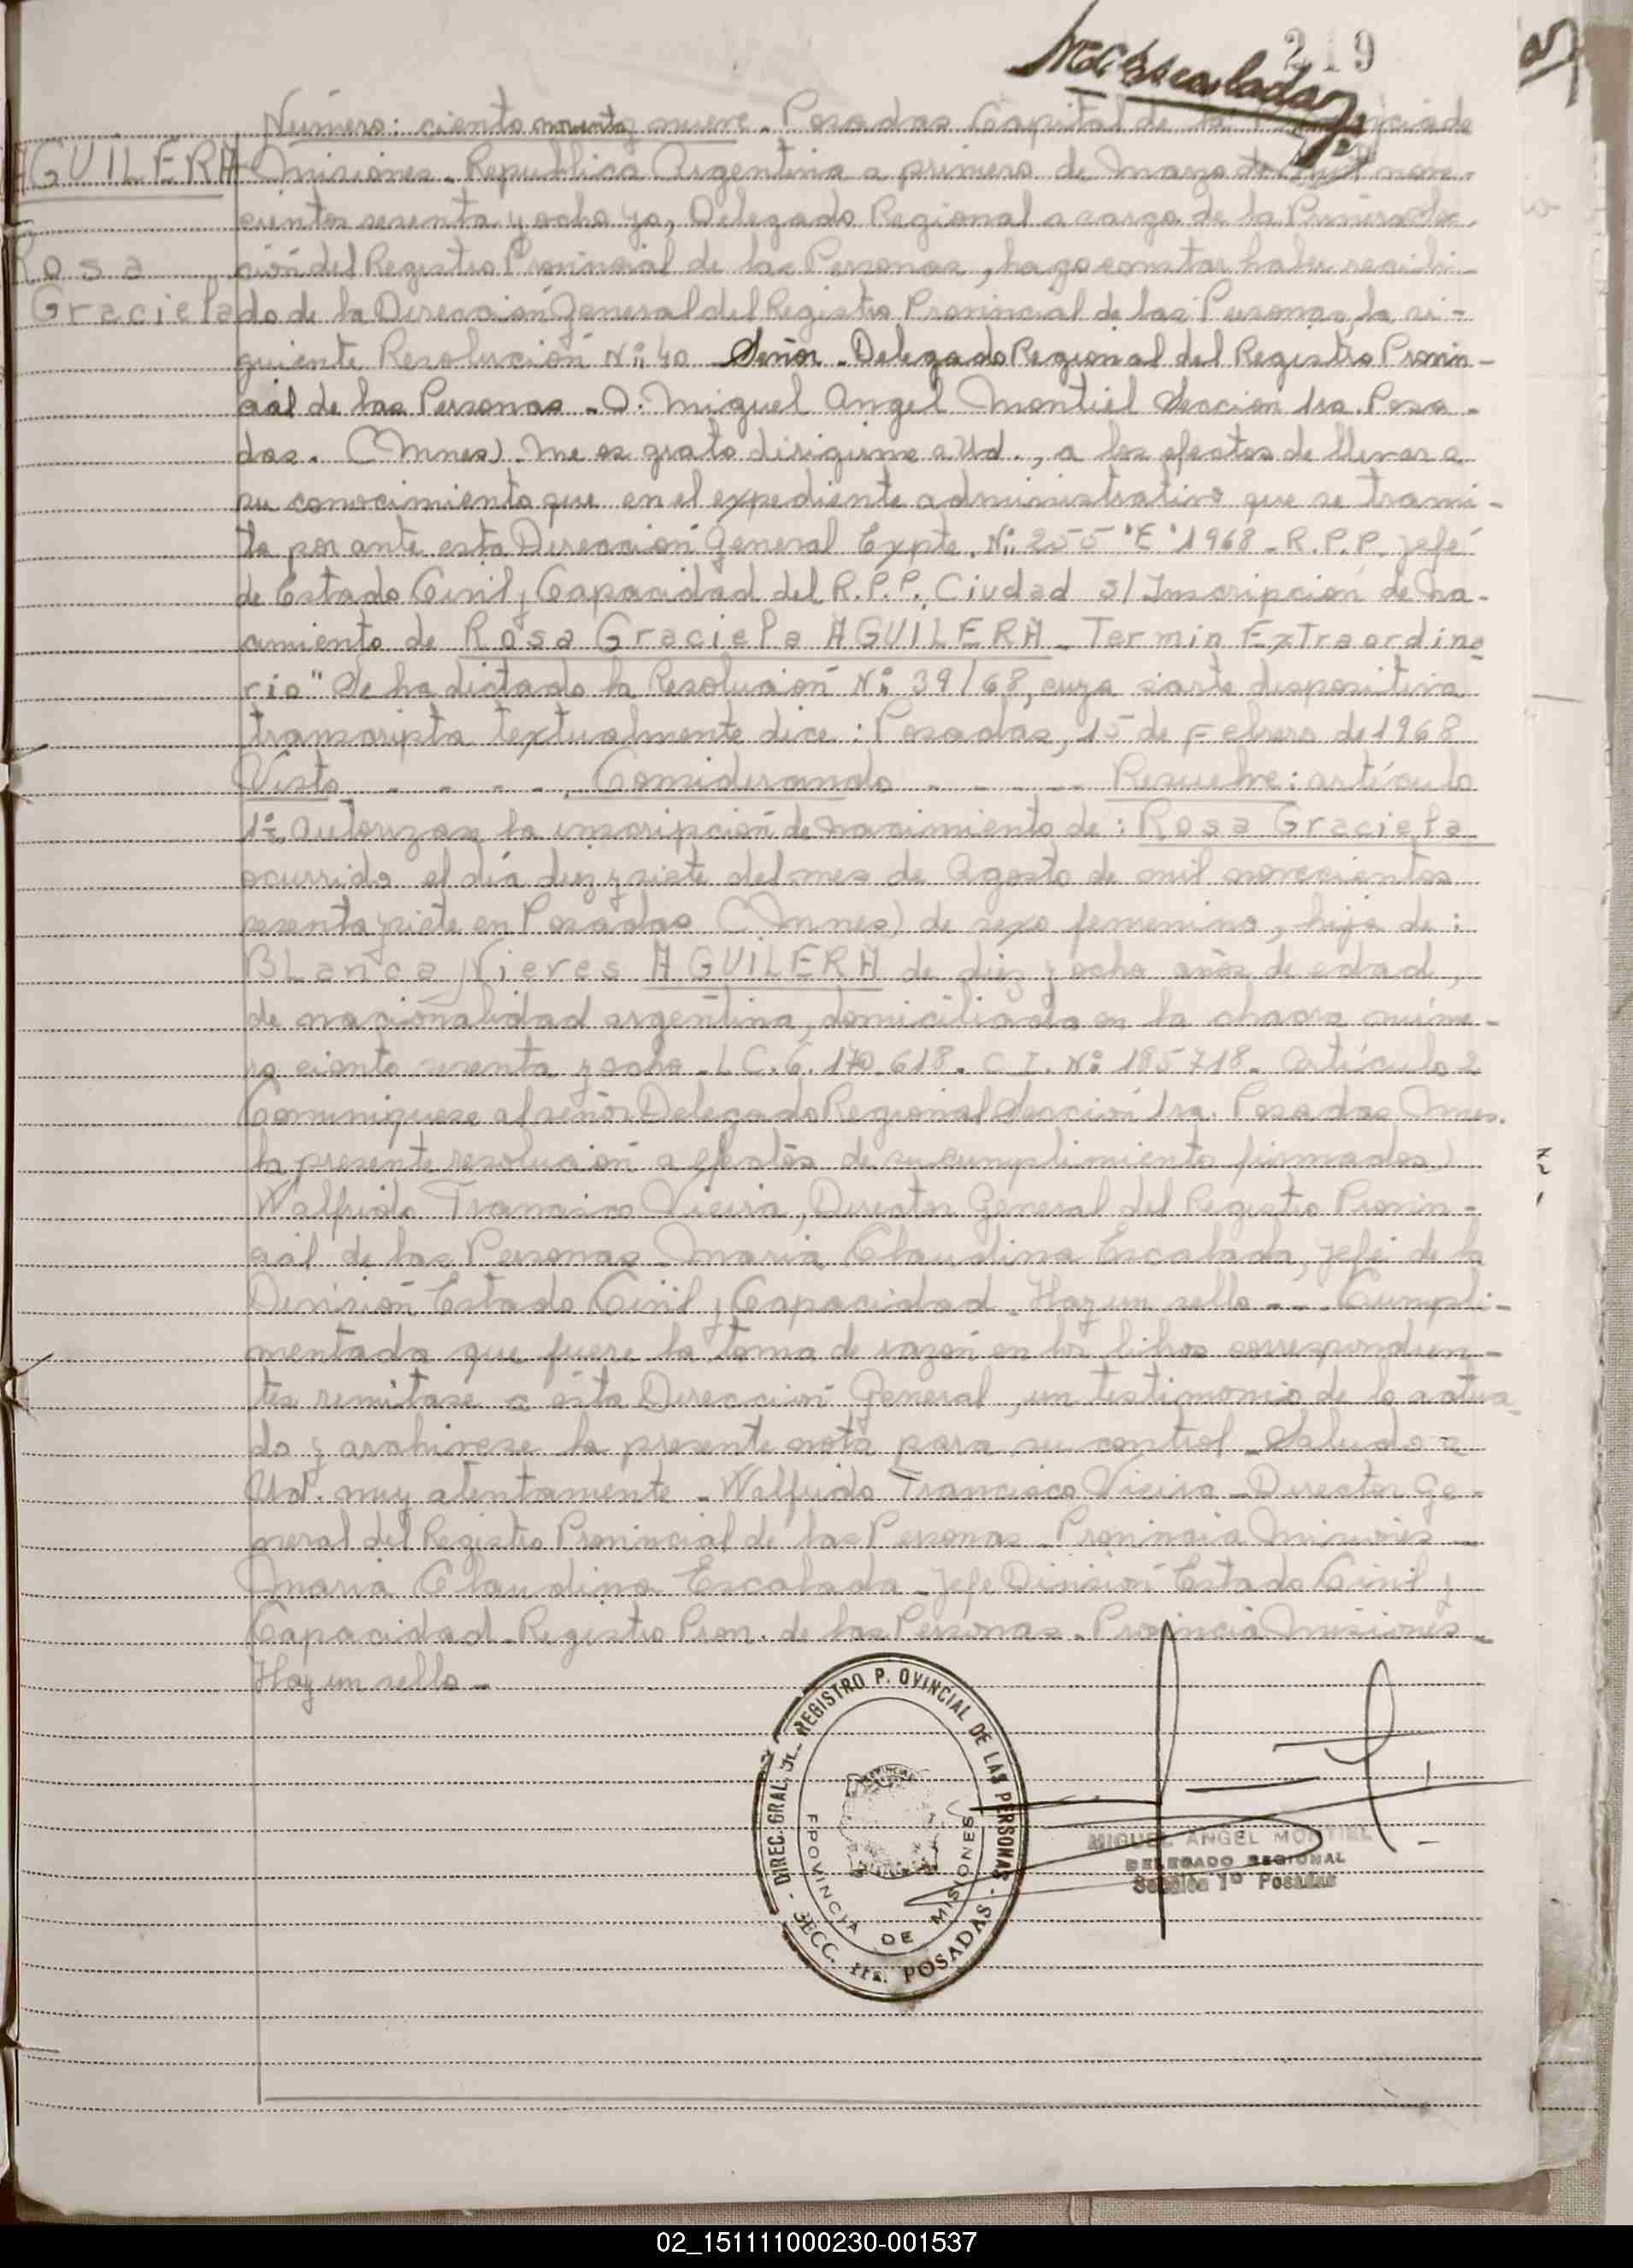 219
MCEscalada
Número: ciento noventa y nueve - Posadas Capital de la Provincia de
AGUILERA
Misiones - Republica Argentina a primero de Marzo de mil nove-
cientos sesenta y ocho yo, Delegado Regional a cargo de la Primera Sec-
Rosa
ción del Registro Provincial de las Personas, hago constar haber recibi-
Graciela
do de la Dirección General del Registro Provincial de las Personas, la si-
guiente Resolución Nº: 40 Señor - Delegado Regional del Registro Provin-
cial de las Personas - D. Miguel Angel Montiel Sección 1ra. Posa-
das. (Mnes). Me es grato dirigirme a Ud., a los efectos de llevar a
su conocimiento que en el expediente administrativo que se trami-
ta por ante esta Dirección General Expte. Nº: 255 "E" 1968 - R.P.P. Jefe
de Estado Civil y Capacidad del R.P.P. Ciudad s/ Inscripción de Na-
cimiento de Rosa Graciela AGUILERA - Termin Extraordina
rio" Se ha dictado la Resolución Nº 39/68, cuya parte dispositiva
transcripta textualmente dice: Posadas, 15 de Febrero de 1968
Visto - - - - . Considerando - - - - - Resuelve: artículo
1º. Autorizar la inscripción de nacimiento de: Rosa Graciela
ocurrido el día diez y siete del mes de Agosto de mil novecientos
sesenta y siete en Posadas (Mnes) de sexo femenino, hija de:
Blanca Nieves AGUILERA de diez y ocho años de edad,
de nacionalidad argentina, domiciliada en la chacra núme-
ro ciento sesenta y ocho - LC. 6.170.618. C I. Nº 185718 - Artículo 2
Comuniquese al señor Delegado Regional Sección 1ra. Posadas Mnes.
la presente resolución a efectos de su cumplimiento firmados)
Walfrido Francisco Vieira, Director General del Registro Provin-
cial de las Personas - Maria Claudina Escalada, Jefe de la
División Estado Civil y Capacidad - Hay un sello - - Cumpli-
mentada que fuere la toma de razón en los libros correspondien-
tes remitase a esta Dirección General, un testimonio de lo actua-
do y archivese la presente nota para su control - Saludo a
Ud. muy atentamente - Walfrido Francisco Vieira - Director Ge-
neral del Registro Provincial de las Personas - Provincia Misiones -
Maria Claudina Escalada - Jefe División Estado Civil y
Capacidad - Registro Prov. de las Personas - Provincia Misiones -
Hay un sello -
DIREC. GRAL. REGISTRO P. OVINCIAL DE LAS PERSONAS
PROVINCIA DE MISIONES
SECC. 1ra. POSADAS
MIGUEL ANGEL MONTIEL
DELEGADO REGIONAL
Sección 1ª Posadas
02_151111000230-001537